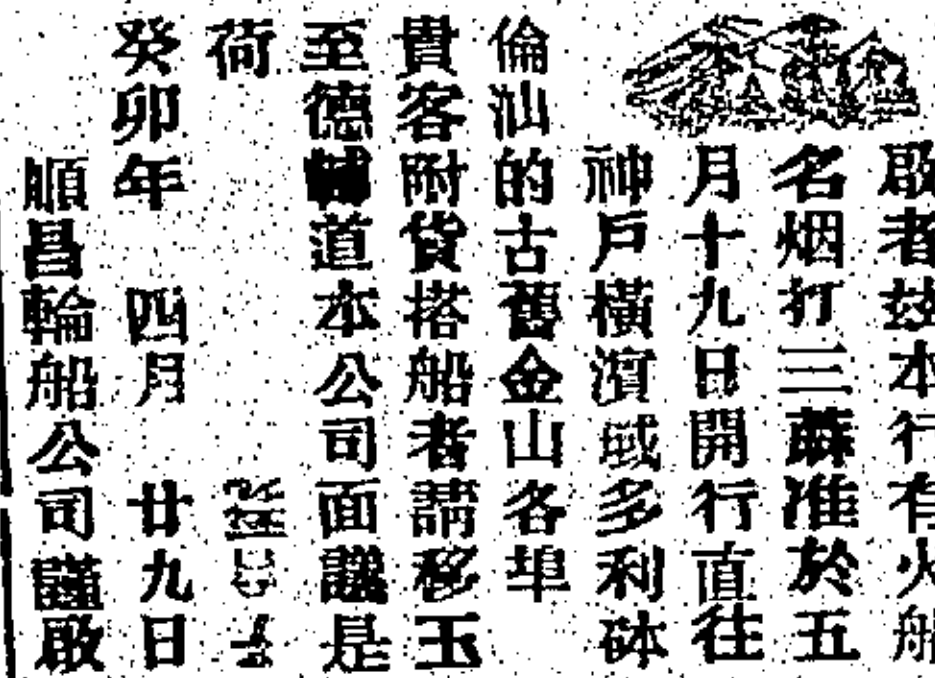 啟者茲本行有火船
名烟打三蔴准於五
月十九日開行直往
神戶橫濱域多利砵
倫汕的古舊金山各埠
貴客附貨搭船者請移玉
至德輔道本公司面議是
荷
癸卯年四月廿九日
順昌輪船公司謹啟